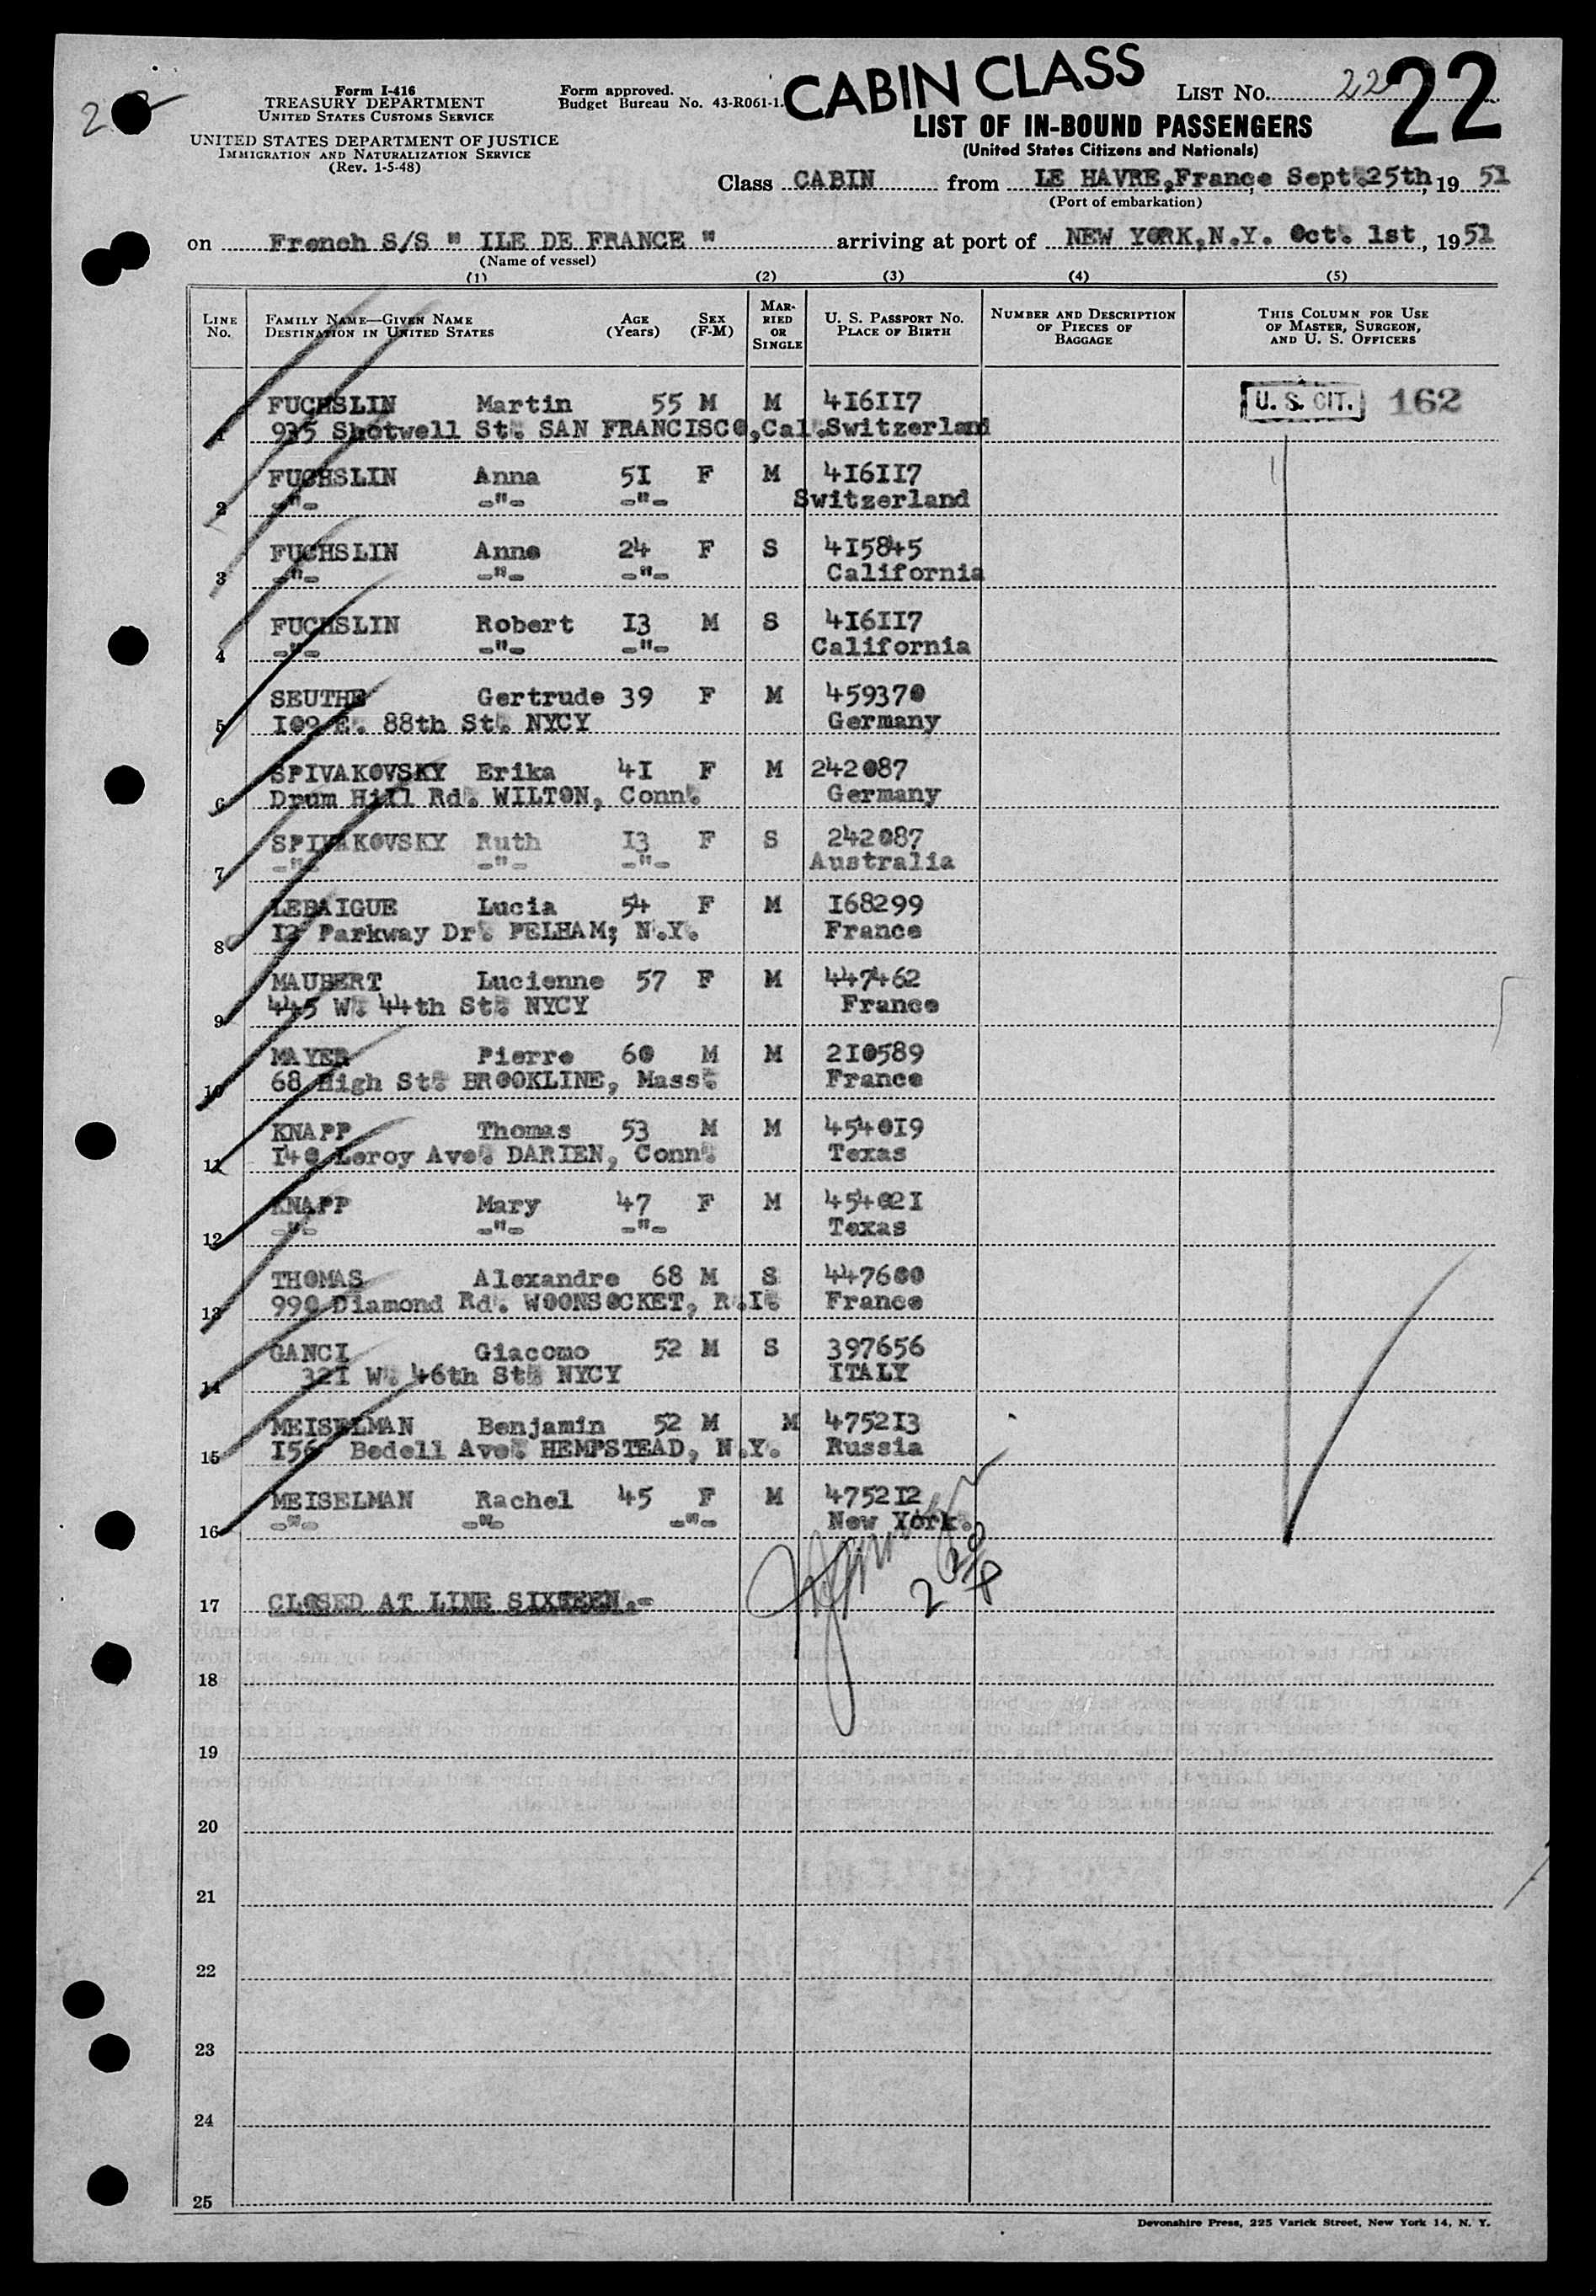 Form I-416
TREASURY DEPARTMENT
UNITED STATES CUSTOMS SERVICE
UNITED STATES DEPARTMENT OF JUSTICE
IMMIGRATION AND NATURALIZATION SERVICE
(Rev. 1-5-48)
Form approved.
Budget Bureau No. 43-R061-1.
CABIN CLASS
LIST NO. 22 22
LIST OF IN-BOUND PASSENGERS
(United States Citizens and Nationals)
Class CABIN from LE HAVRE,France Sept. 25th, 19 51
(Port of embarkation)
on French S/S " ILE DE FRANCE " arriving at port of NEW YORK,N.Y. Oct. 1st, 1951
(Name of vessel)
(1) (2) (3) (4) (5)
LINE NO. FAMILY NAME—GIVEN NAME DESTINATION IN UNITED STATES AGE (Years) SEX (F-M) MARRIED OR SINGLE U. S. PASSPORT NO. PLACE OF BIRTH NUMBER AND DESCRIPTION OF PIECES OF BAGGAGE THIS COLUMN FOR USE OF MASTER, SURGEON, AND U. S. OFFICERS
FUCHSLIN Martin 55 M M 416117 U. S. CIT. 162
1 935 Shotwell St. SAN FRANCISCO,Cal.Switzerland
FUCHSLIN Anna 51 F M 416117
2 -"- -"- -"- Switzerland
FUCHSLIN Anne 24 F S 415845
3 -"- -"- -"- California
FUCHSLIN Robert 13 M S 416117
4 -"- -"- -"- California
SEUTHE Gertrude 39 F M 459370
5 109 E. 88th St. NYCY Germany
SPIVAKOVSKY Erika 41 F M 242087
6 Drum Hill Rd. WILTON, Conn. Germany
SPIVAKOVSKY Ruth 13 F S 242087
7 -"- -"- -"- Australia
LEBAIGUE Lucia 54 F M 168299
8 12 Parkway Dr. PELHAM; N.Y. France
MAUBERT Lucienne 57 F M 447462
9 445 W. 44th St. NYCY France
MAYER Pierre 60 M M 210589
10 68 High St. BROOKLINE, Mass. France
KNAPP Thomas 53 M M 454019
11 140 Leroy Ave. DARIEN, Conn. Texas
KNAPP Mary 47 F M 454021
12 -"- -"- -"- Texas
THOMAS Alexandre 68 M S 447600
13 990 Diamond Rd. WOONSOCKET, R.I. France
GANCI Giacomo 52 M S 397656
14 321 W. 46th St. NYCY ITALY
MEISELMAN Benjamin 52 M M 475213
15 156 Bedell Ave. HEMPSTEAD, N.Y. Russia
MEISELMAN Rachel 45 F M 475212
16 -"- -"- -"- New York.
17 CLOSED AT LINE SIXTEEN.-
18
19
20
21
22
23
24
25
Devonshire Press, 225 Varick Street, New York 14, N. Y.